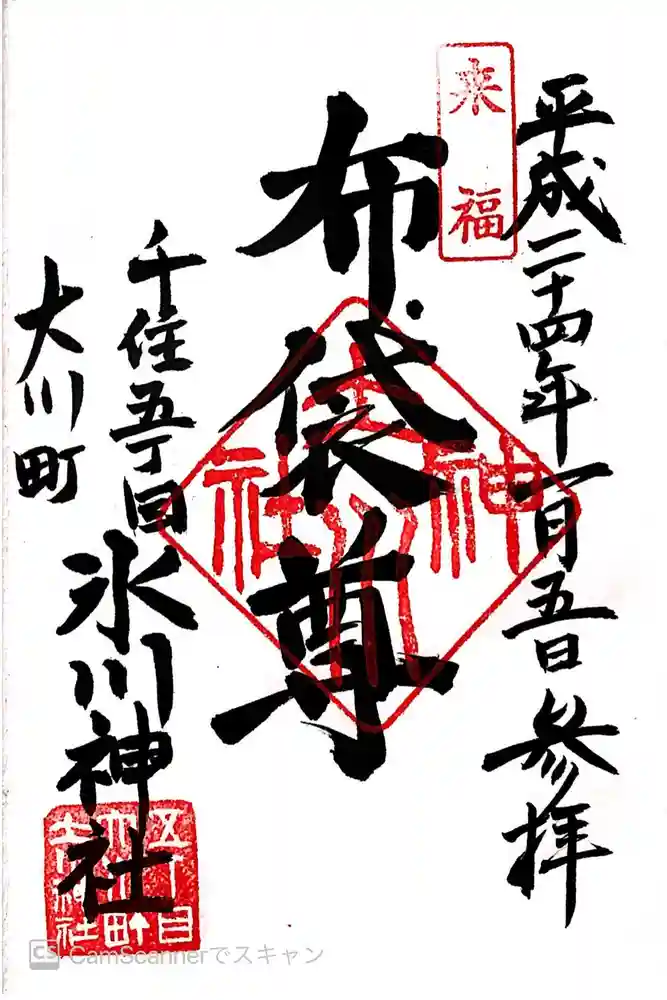 平成二十四年一月五日参拝
来福
布袋尊
千住五丁目
大川町
氷川神社
CamScannerでスキャン